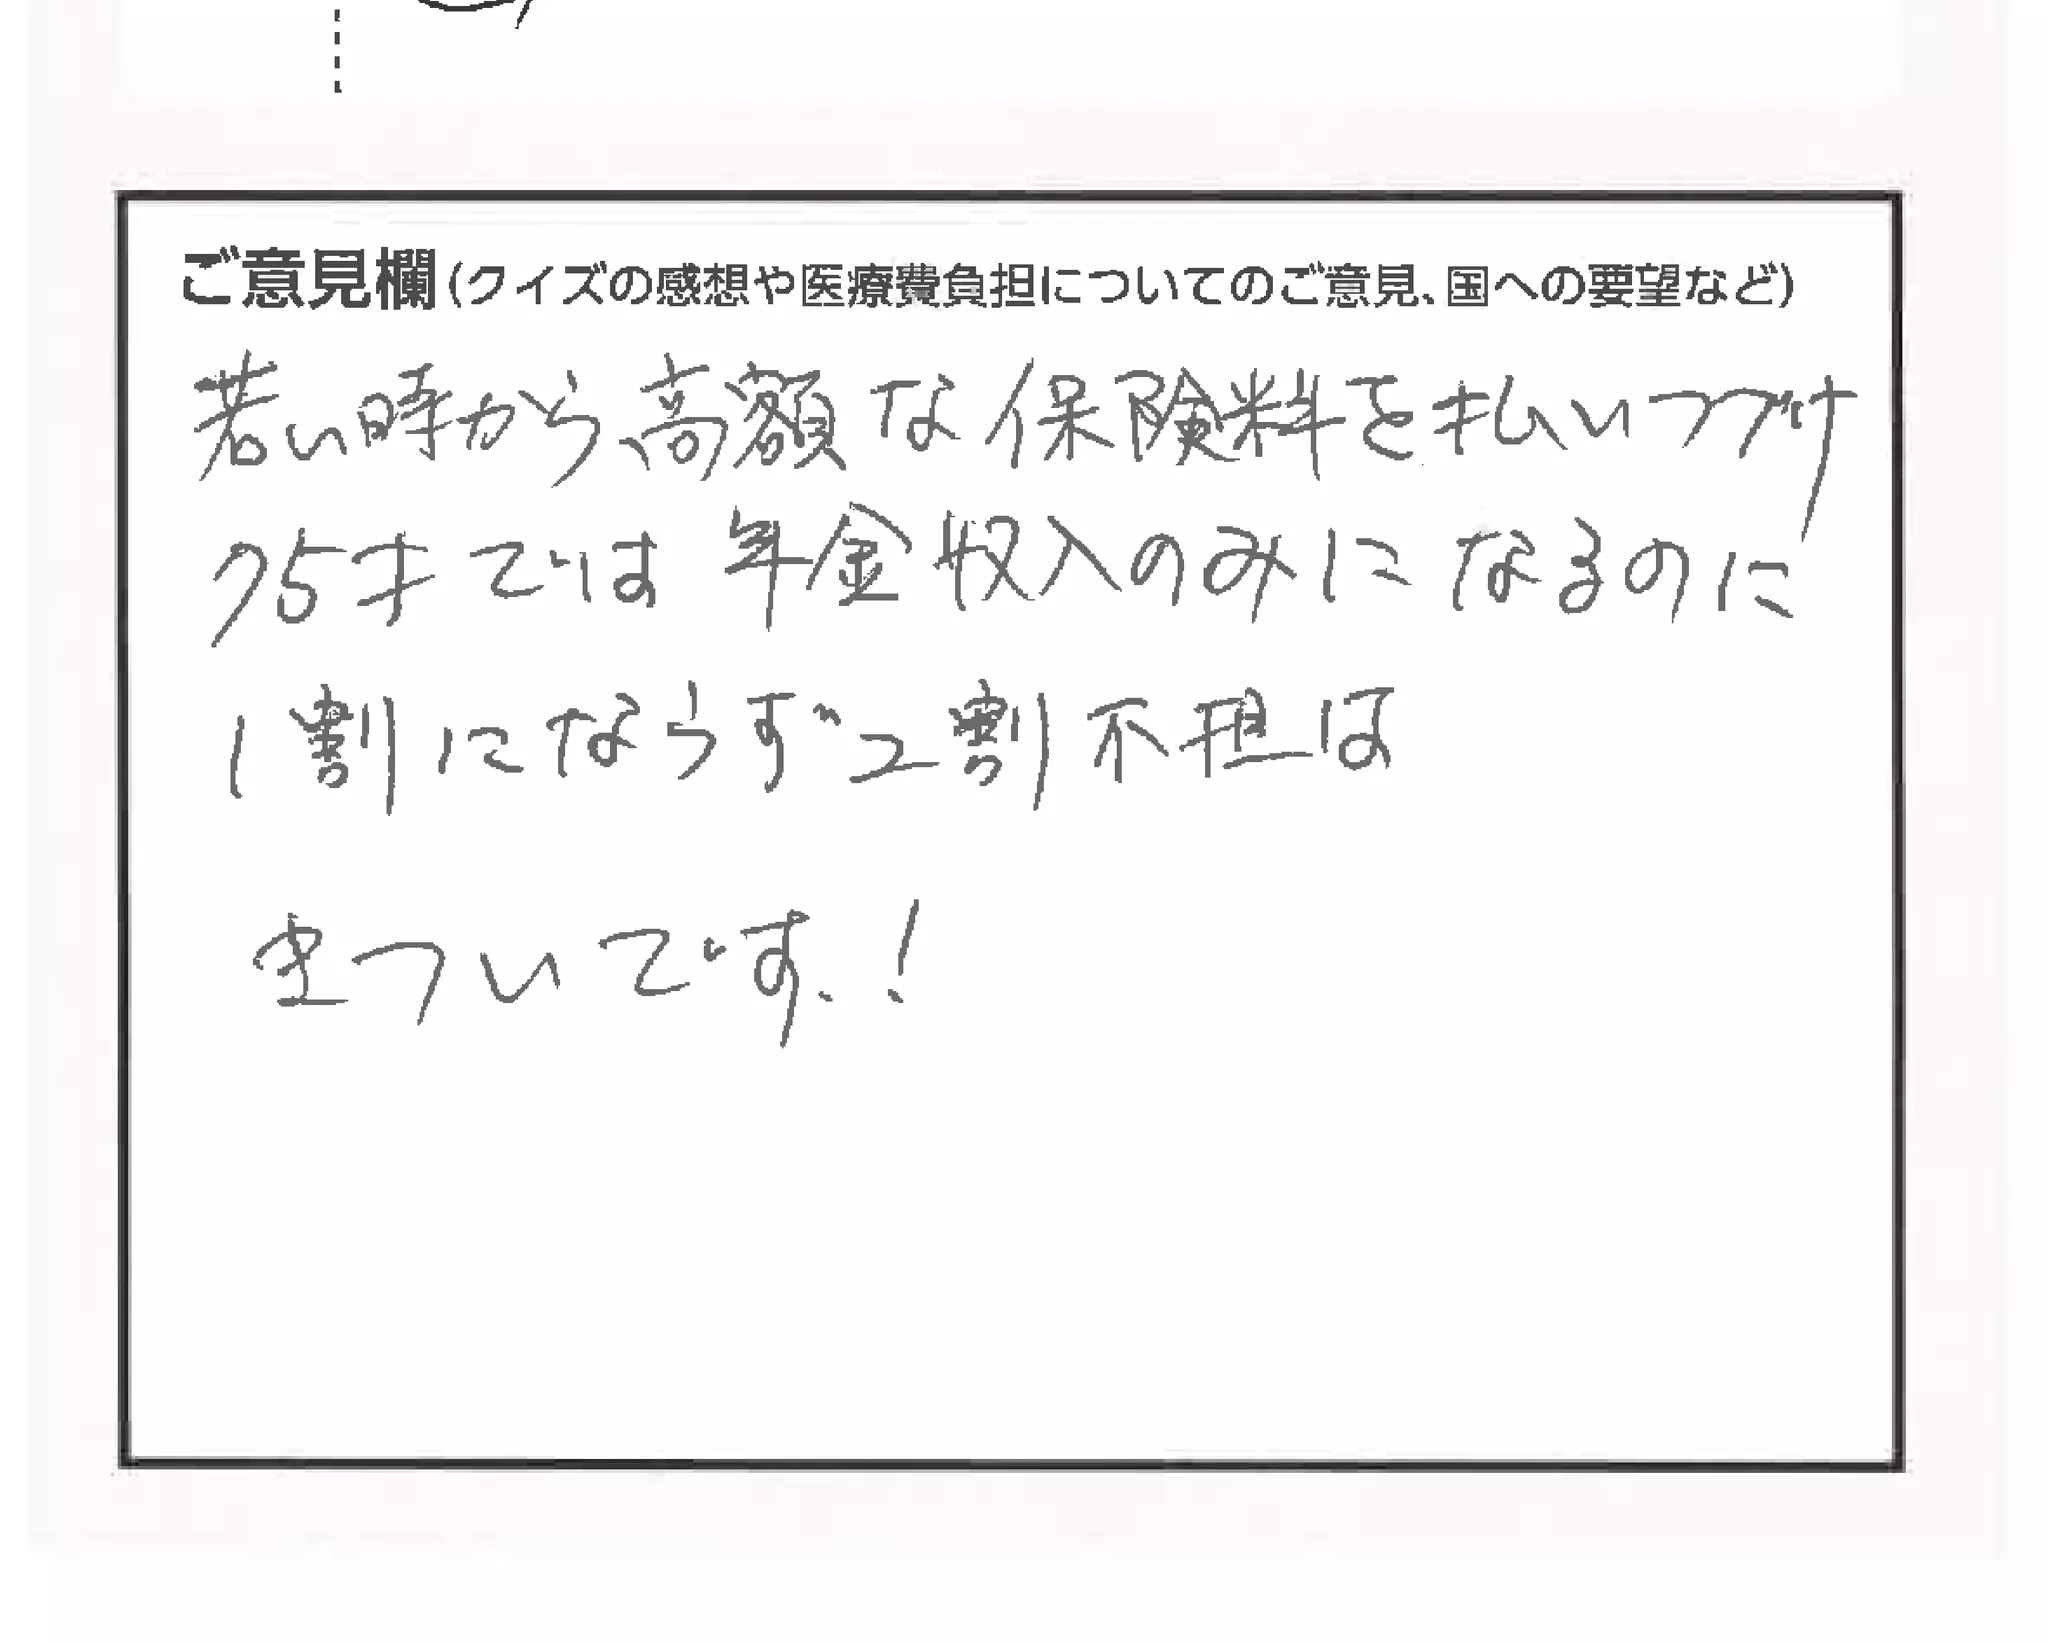 ご意見欄(クイズの感想や医療費負担についてのご意見、国への要望など)
若い時から、高額な保険料を払いつづけ
75才では年金収入のみになるのに
1割にならず2割不担は
きついです.!